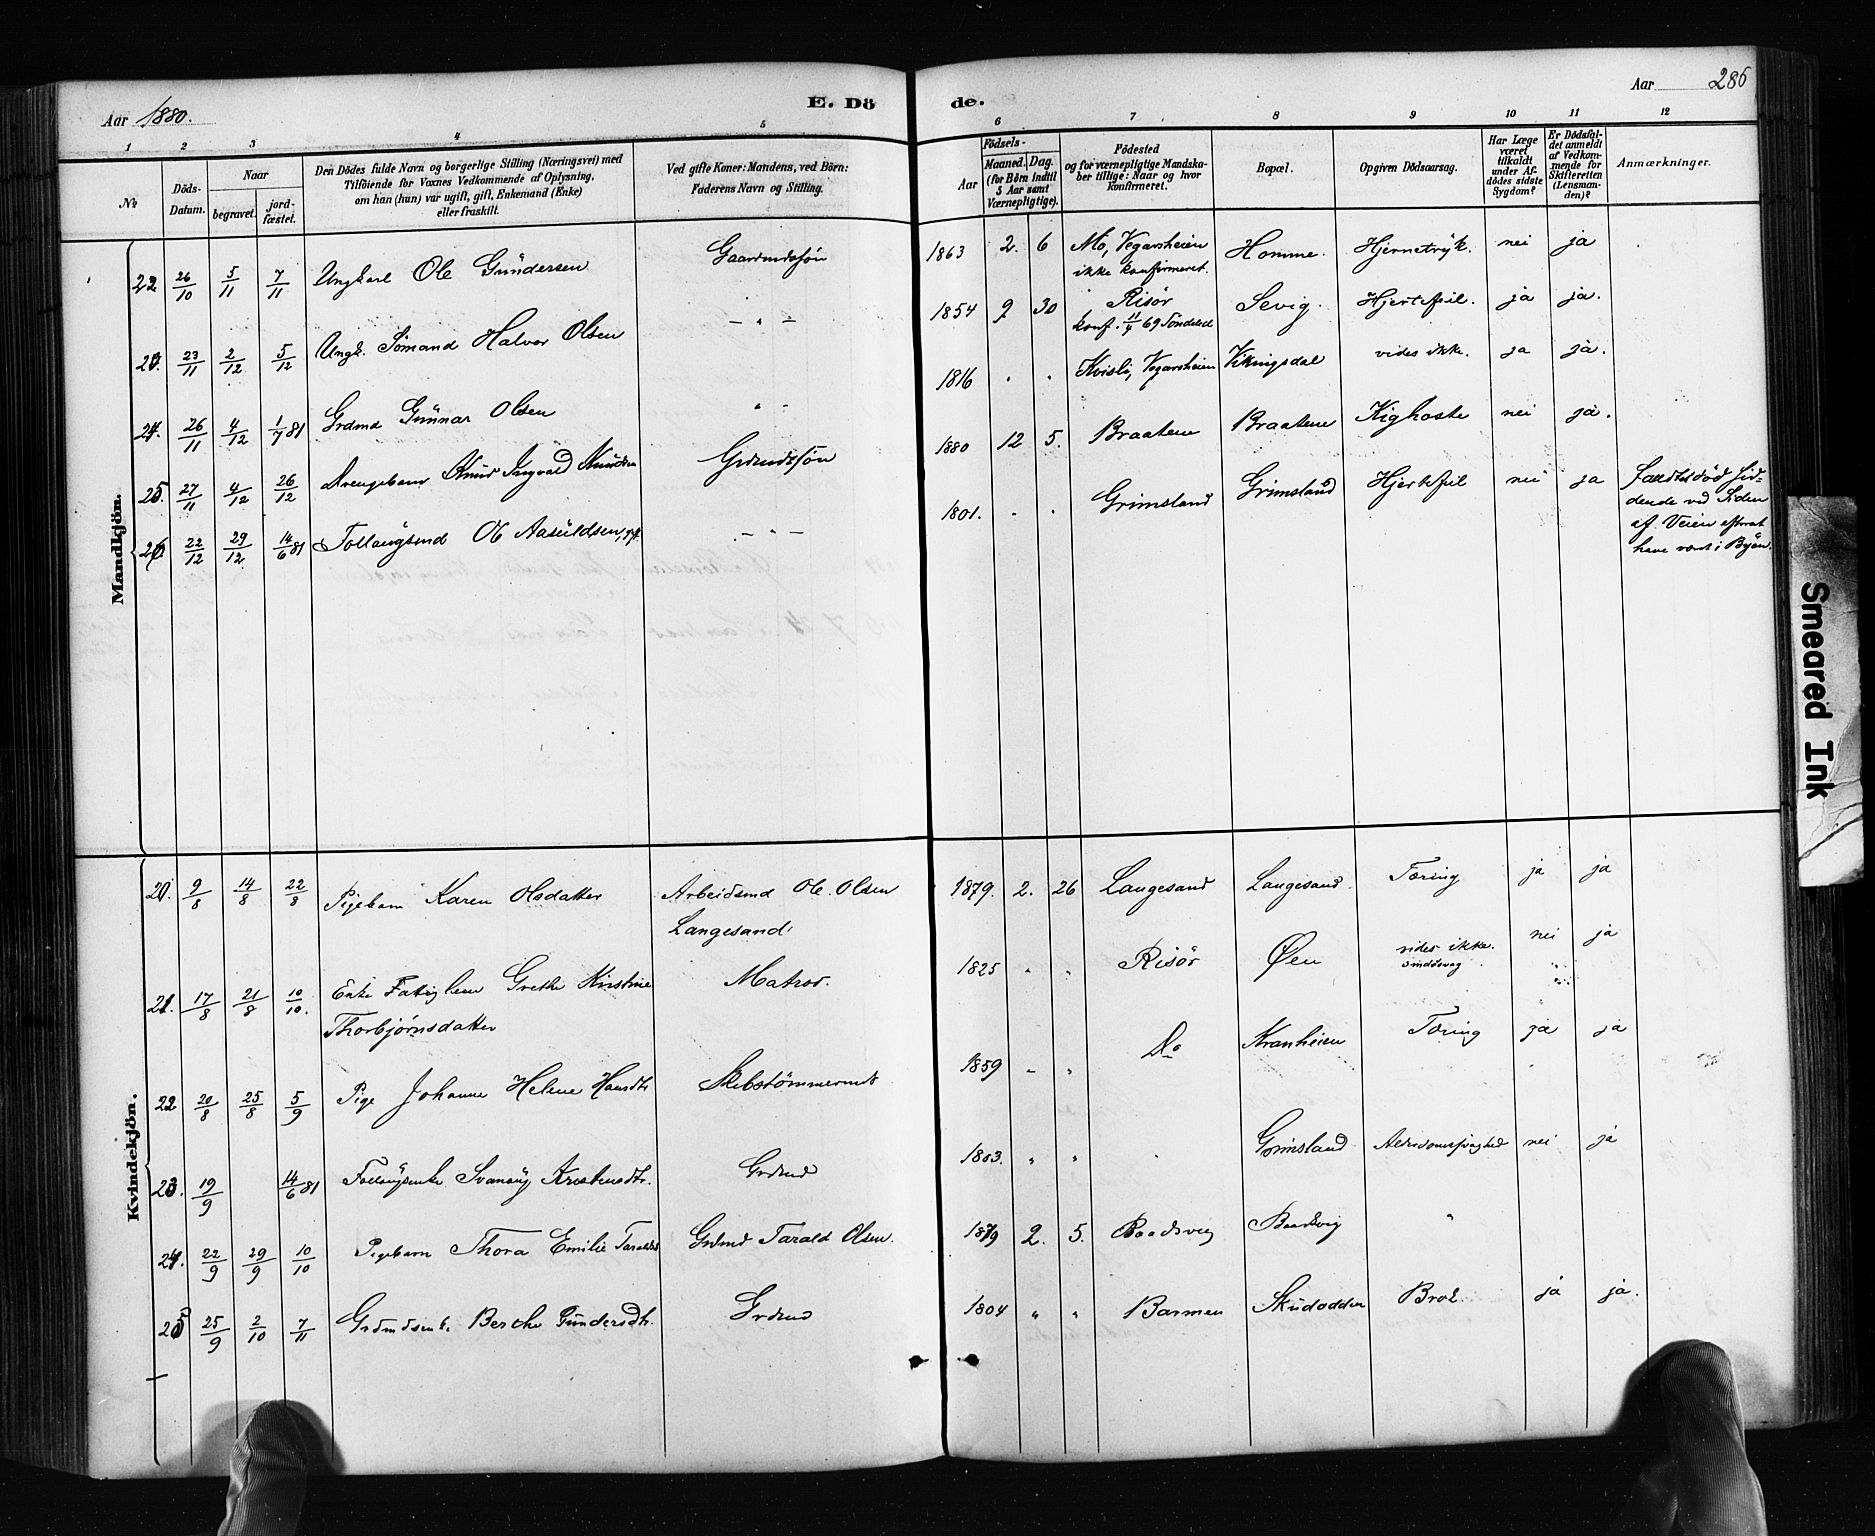 Aar 1880.
E. Dö
de.
Aar 286
1 2 3 4 5 6 7 8 9 10 11 12
№
Döds-Datum.
Naar
begravet.
jord-fæstet.
Den Dödes fulde Navn og borgerlige Stilling (Næringsvei) med
Tilföiende for Voxnes Vedkommende af Oplysning,
om han (hun) var ugift, gift, Enkemand (Enke)
eller fraskilt.
Ved gifte Koner: Mandens, ved Börn:
Faderens Navn og Stilling.
Födsels-
Aar
Maaned. Dag.
(for Börn indtil
5 Aar samt
Værnepligtige).
Födested
og for værnepligtige Mandska-
ber tillige: Naar og hvor
Konfirmeret.
Bopæl.
Opgiven Dödsaarsag.
Har Læge
været
tilkaldt
under Af-
dödes sidste
Sygdom?
Er Dödsfal-
det anmeldt
af Vedkom-
mende for
Skifteretten
(Lensman-
den)?
Anmærkninger.
Mandkjön.
22 26/10 5/11 7/11 Ungkarl Ole Gundersen Gaardmdssøn 1863 2. 6 Mo, Vegarsheien Homme. Hjernetryk. nei ja
ikke konfirmeret.
23. 23/11 2/12 5/12 Ungk. Sømand Halvor Olsen — " — 1854 9 30 Risör Sevig. Hjertefeil. ja ja.
konf. 11/4 69 Söndeled
24. 26/11 4/12 1/7 81 Grdmd Gunnar Olsen " - 1816 . . Kvisli, Vegarsheien Vikingsdal vides ikke. ja ja.
25. 27/11 4/12 26/12 Drengebarn Knud Ingvald Knudsen Grdmdssøn 1880 12 5. Braatene Braatene Kighoste nei ja.
26 22/12 29/12 14/6 81 Follaugsmd Ole Aasuldsen, gift. — " — 1801. . . Grimsland Grimsland Hjertefeil nei ja Fandtes död sid-
dende ved Siden
af Veien efterat
have vært i Byen.
Kvindekjön.
20. 9/8 14/8 22/8 Pigebarn Karen Olsdatter Arbeidsmd Ole Olsen 1879. 2. 26 Langesand Langesand. Tæring ja ja
Langesand
21. 17/8 21/8 10/10. Enke Fattiglem Grethe Kirstine Matros. 1825 " " Risör Øen vides ikke. nei ja
Thorbjørnsdatter
22 20/8 25/8 5/9 Pige Johanne Helene Hansdtr Skibstømmermd 1859 " " Do Kranheien Tæring ja ja
23. 19/9 14/6 81 Follaugsenke Svanaug Kristensdtr. Grdmd 1803. " " . Grimsland Alderdomssvaghed nei ja
24. 22/9 29/9 10/10 Pigebarn Thora Emilie Taraldsd Grdmd Tarald Olsen. 1879 2. 5. Baadsvig Baadsvig "
25 25/9 2/10 7/11 Grdmdsenke Berthe Gundersdtr. Grdmd 1804 " " Barmen Skudodden Brok. ja ja.
Smeared Ink